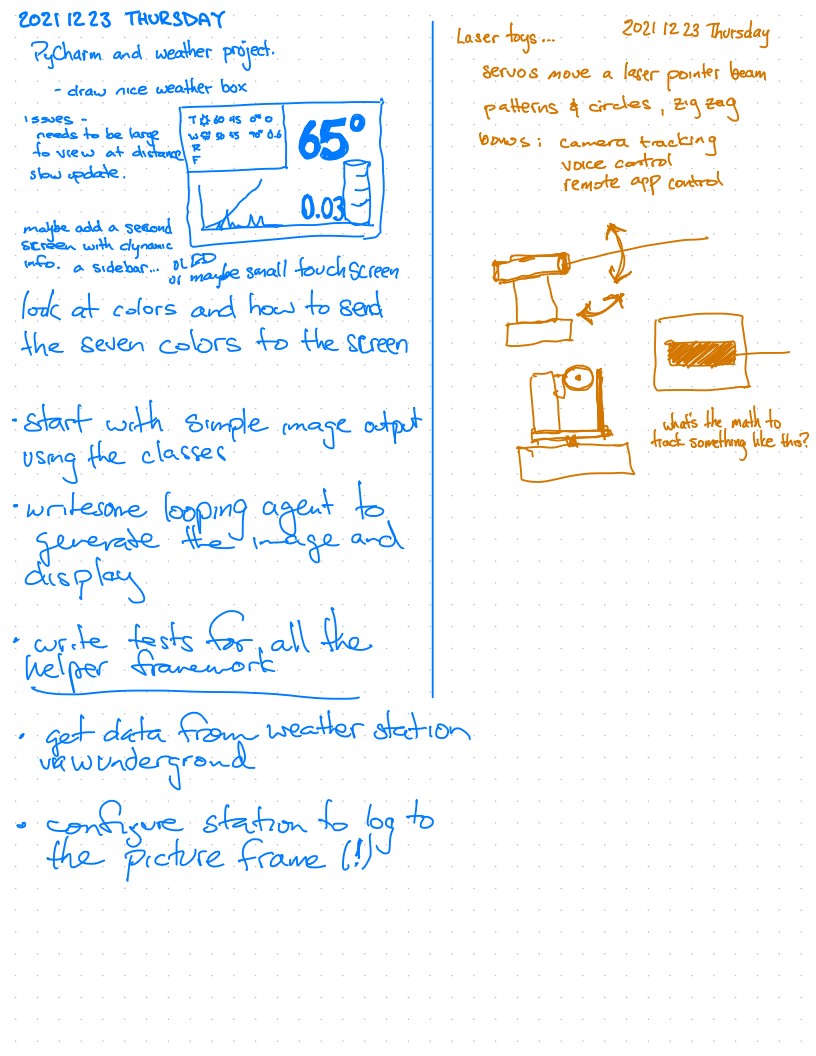 2021 12 23 THURSDAY
PyCharm and weather project.
- draw nice weather box
issues -
needs to be large
to view at distance
slow update.
T 60 45 0° 0
W 50 45 0.6
R
F
65°
0.03
maybe add a second
screen with dynamic
info. a sidebar...
OLED
or maybe small touch screen
look at colors and how to send
the seven colors to the screen
· start with simple image output
using the classes
· writesome looping agent to
generate the image and
display
· write tests for all the
helper framework
· get data from weather station
via wundergrond
· configure station to log to
the picture frame (!)
2021 12 23 Thursday
Laser toys...
servos move a laser pointer beam
patterns & circles, zig zag
bonus: camera tracking
voice control
remote app control
what's the math to
track something like this?